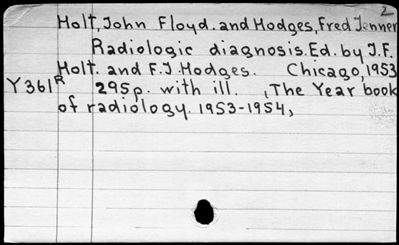 2
Holt, John Floyd. and Hodges, Fred Jenner
Radiologic diagnosis. Ed. by J.F.
Holt. and F.J. Hodges. Chicago, 1953
Y361R 295p. with ill. (The Year book
of radiology. 1953-1954,